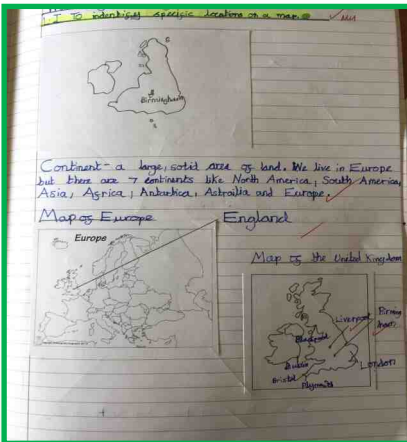 L.I To indentifiy specific locations on a map
Birmingham
Continent - a large, solid area of land. We live in Europe
but there are 7 continents like North America, South America,
Asia, Africa, Antartica, Astrailia and Europe.
Map of Europe
England
Europe
Map of the United Kingdom
Liverpool
Birming
ham
Blackpool
Dublin
London
Bristol
Plymouth